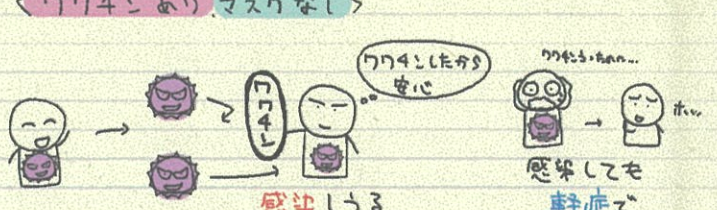 ワクチンあり マスクなし
ワクチンしたから
安心
ワクチン
ワクチンうったのに...
ホッ...
感染しうる
感染しても
軽症で